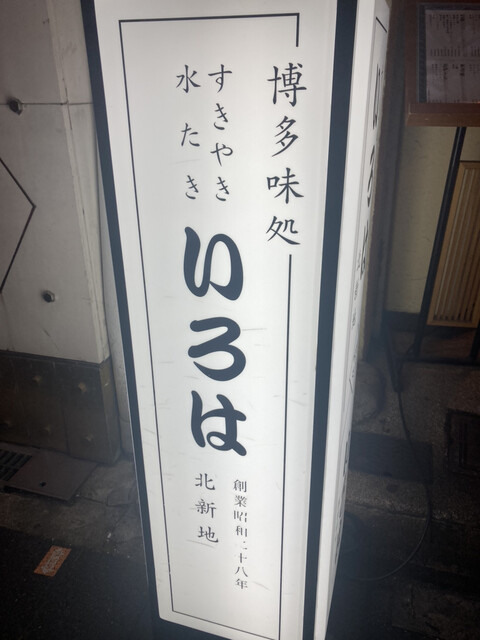 博多味処
すきやき
水たき
いろは
創業昭和二十八年
北新地
いろは